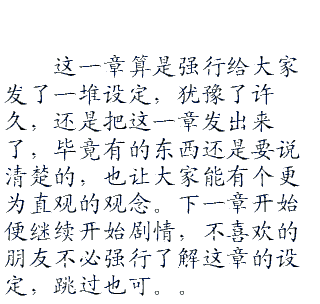 这一章算是强行给大家
发了一堆设定，犹豫了许
久，还是把这一章发出来
了，毕竟有的东西还是要说
清楚的，也让大家能有个更
为直观的观念。下一章开始
便继续开始剧情，不喜欢的
朋友不必强行了解这章的设
定，跳过也可。。